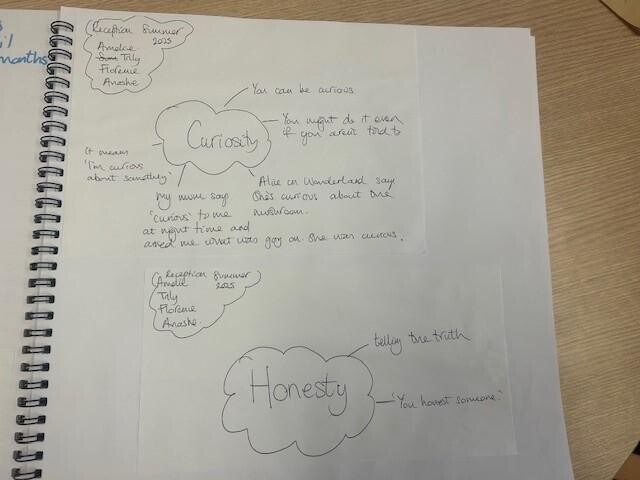 months
Reception Summer
2025
Amelie
Tilly
Florence
Anashe
Curiosity
You can be curious
You might do it even
if you aren't told to
It means
'I'm curious
about something'
Alice in Wonderland says
She's curious about the
mushroom.
My mum says
'curious' to me
at night time and
asked me what was goy on. She was curious.
Reception Summer
2025
Amelie
Tilly
Florence
Anashe
Honesty
telling the truth
'You honest someone.'